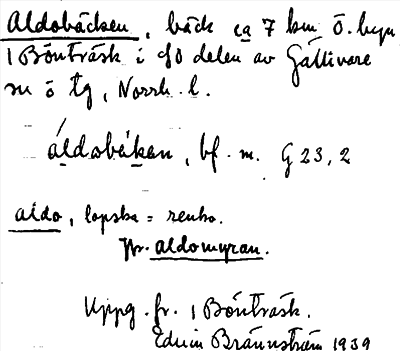 Aldobäcken, bäck ca 7 km ö. byn
1 Bönträsk i sö delen av Gällivare
sn ö tg, Norrb. l.
áldobäken, bf. m. G 23, 2
aldo, lapska = renko.
Jfr. aldomyran.
Uppg. fr. 1 Böntträsk.
Edvin Brännström 1939